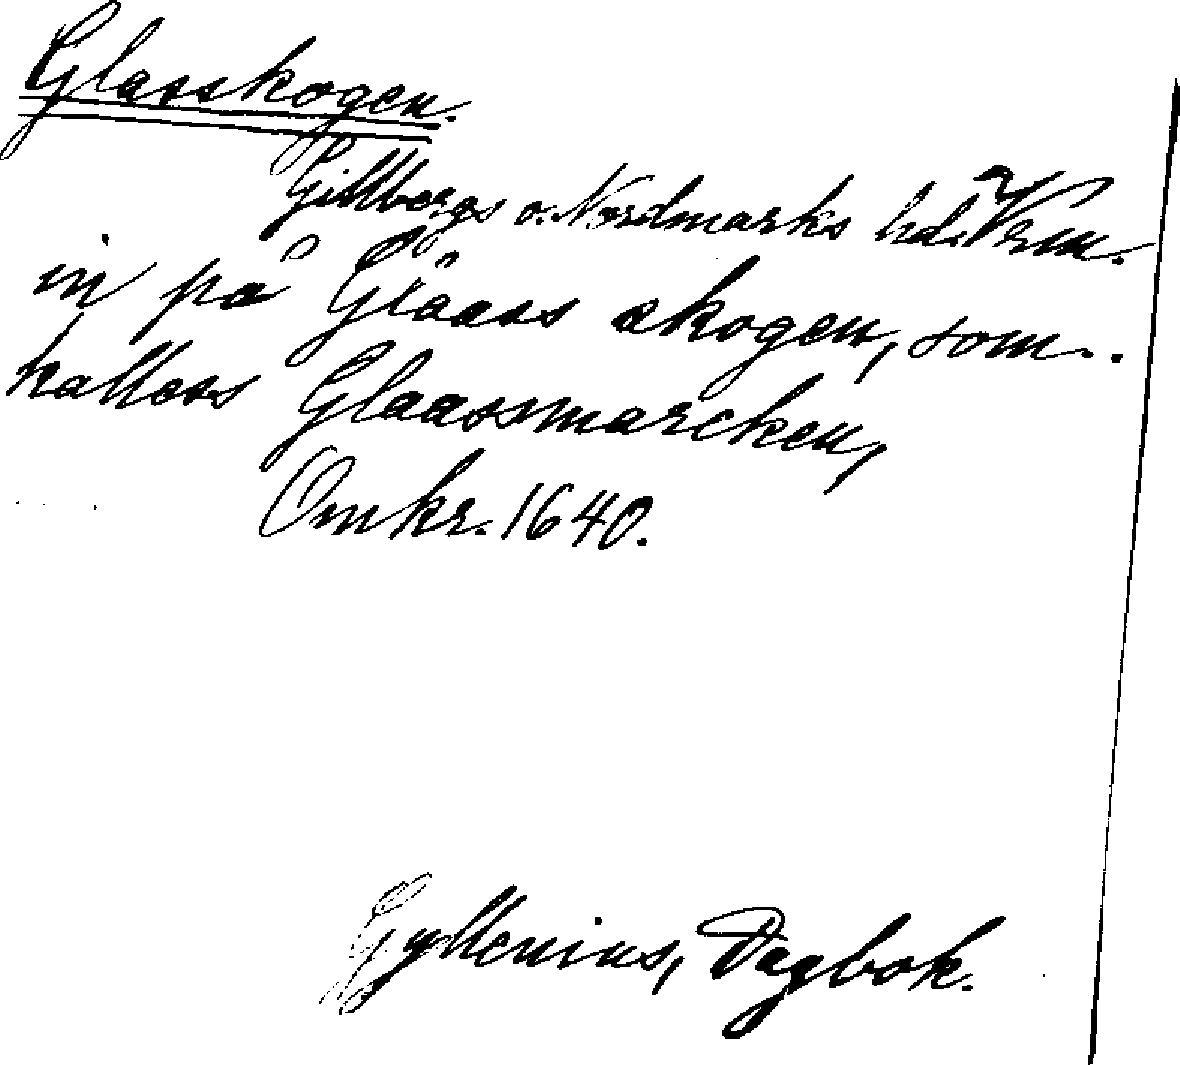 Glasskogen.
Gillbergs o. Nordmarks hd. Vrm.
in på Glaass skogen, som
kallass Glaassmarcken,
Omkr. 1640.
Gyllenius, Dagbok.